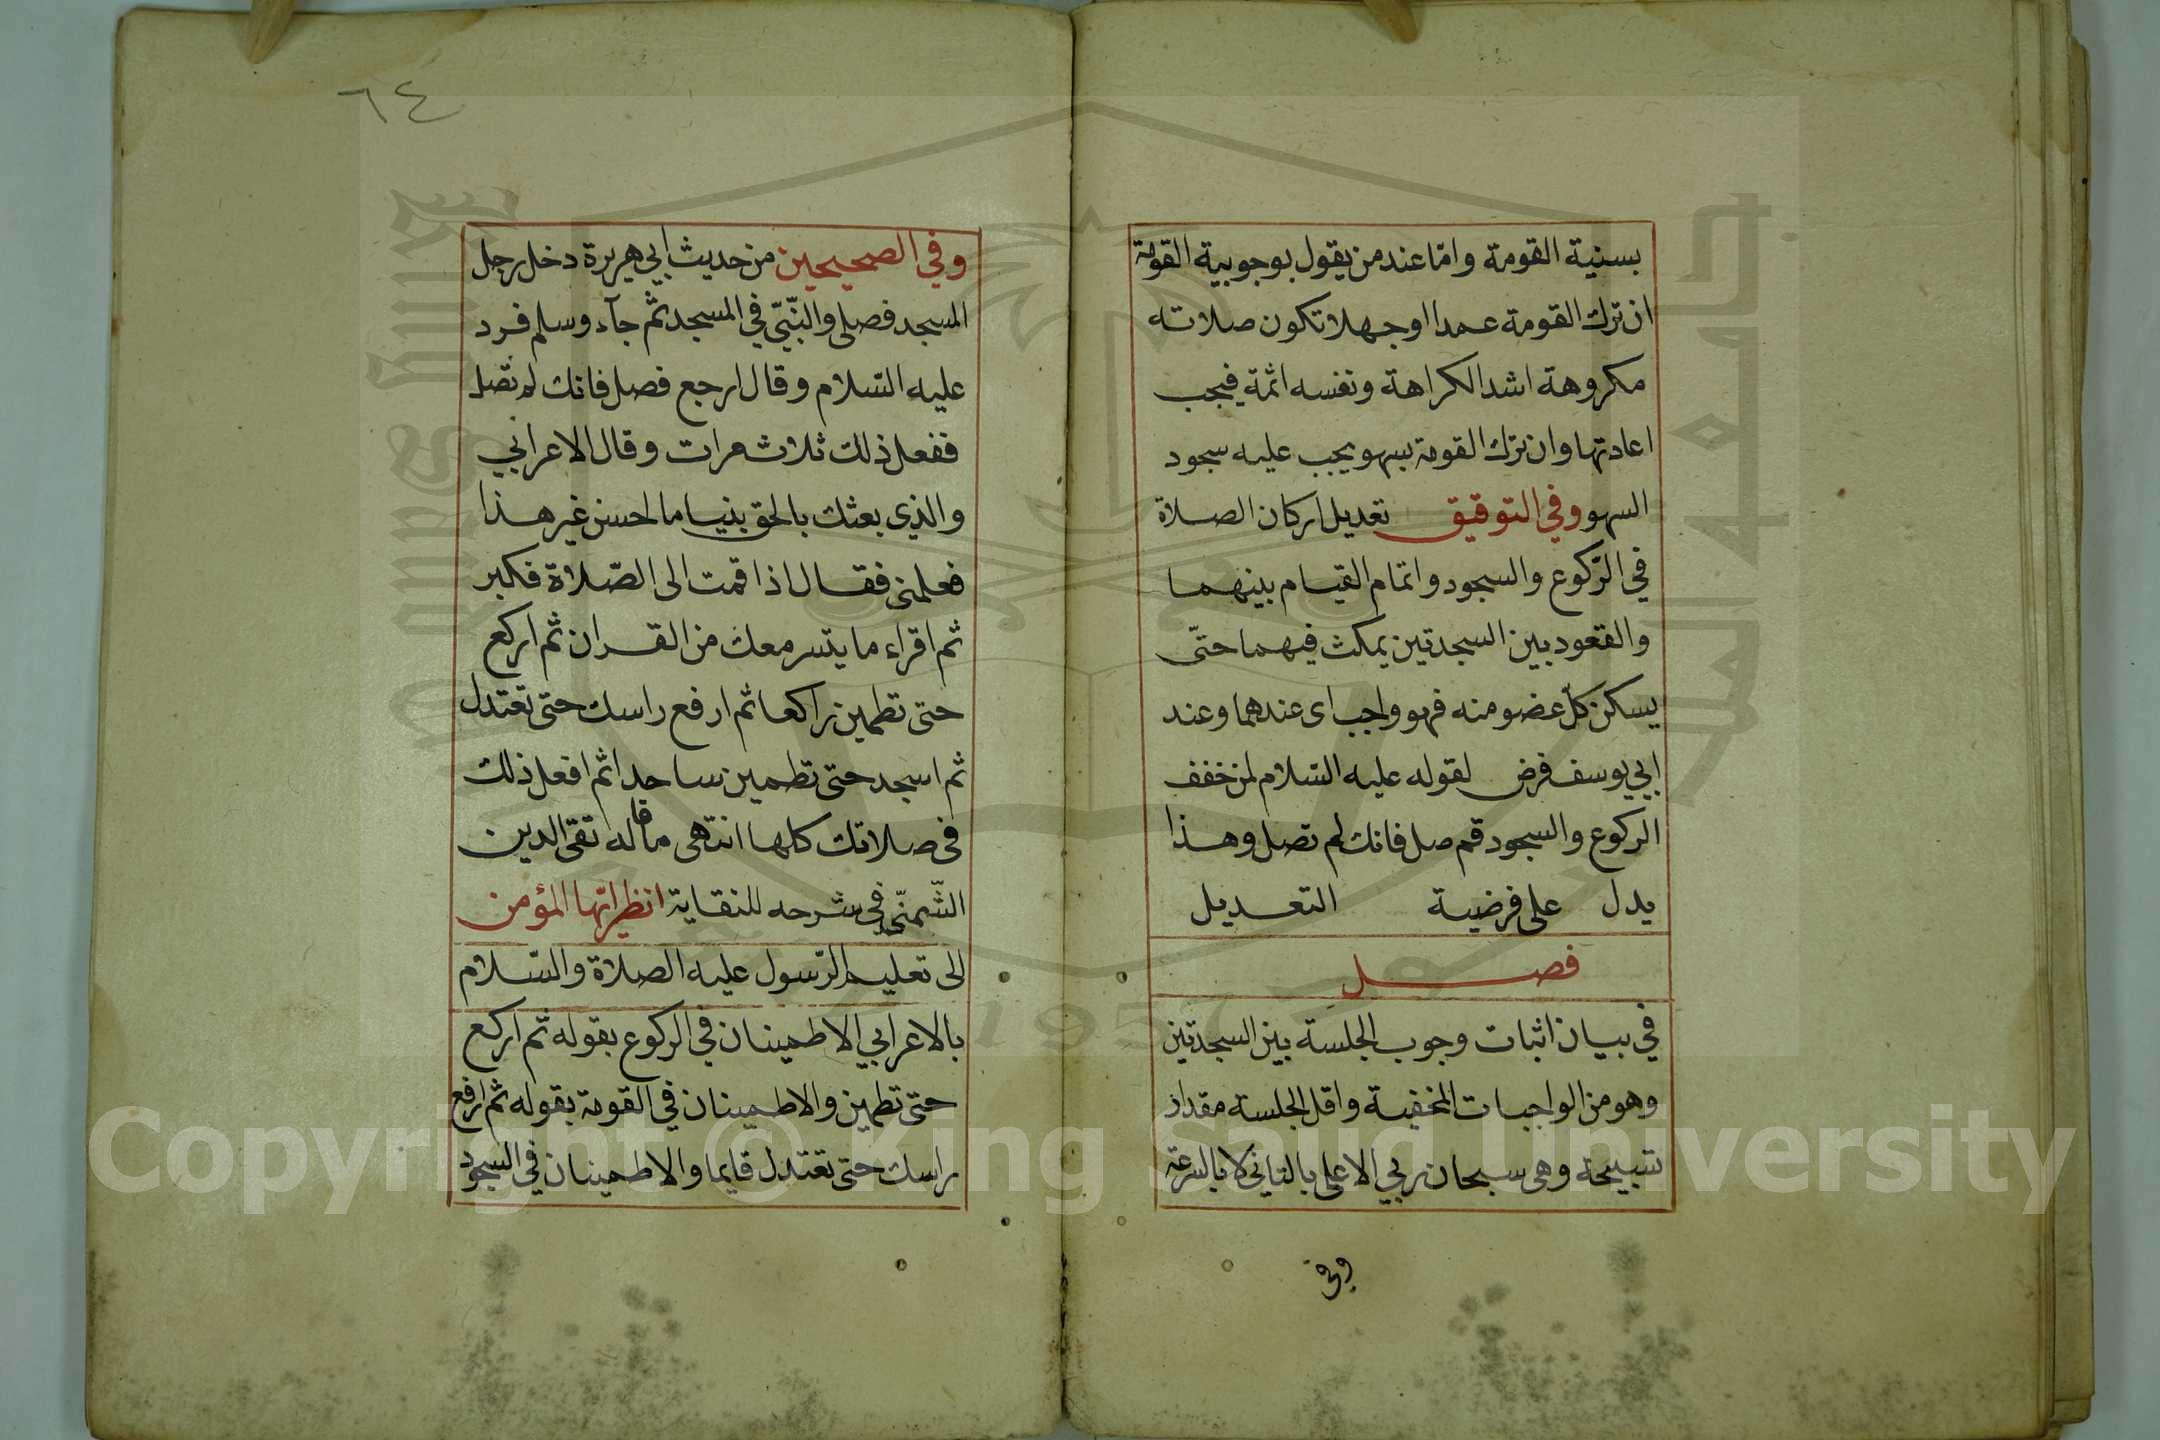 بسنية القومة وامّا عند من يقول بوجوبية القومة
ان ترك القومة عمدا او جهلا تكون صلاته
مكروهة اشد الكراهة ونفسه اثمة فيجب
اعادتها وان ترك القومة بسهو يجب عليه سجود
السهو وفي التوقيق تعديل اركان الصلاة
في الرّكوع والسجود واتمام القيام بينهما
والقعود بين السجدتين يمكث فيهما حتّى
يسكن كل عضو منه فهو واجب اى عندهما وعند
ابي يوسف فرض لقوله عليه السّلام لمن خفف
الركوع والسجود قم صل فانك لم تصل وهذا
يدل على فرضية التعديل
فصل
في بيان اثبات وجوب الجلسة بين السجدتين
وهو من الواجبات المخفية واقل الجلسة مقدار
تسبيحة وهى سبحان ربي الاعلى بالتاني لا بالسرعة
وفي
٦٤
وفي الصحيحين من حديث ابي هريرة دخل رجل
المسجد فصلى والنّبيّ في المسجد ثم جآء وسلم فرد
عليه السّلام وقال ارجع فصل فانك لم تصل
ففعل ذلك ثلاث مرات وقال الاعرابي
والذي بعثك بالحق بنيا ما احسن غير هذا
فعلمنى فقال اذا قمت الى الصّلاة فكبر
ثم اقراء ما يتسر معك من القران ثم اركع
حتى تطمين راكعا ثم ارفع راسك حتى تعتدل
ثم اسجد حتى تطمين ساجدا ثم افعل ذلك
فى صلاتك كلها انتهى ما قاله تقى الدين
الشّمنّي في شرحه للنقاية انظر ايّها المؤمن
الى تعليم الرّسول عليه الصلاة والسّلام
بالاعرابي الاطمينان في الركوع بقوله ثم اركع
حتى تطمين والاطمينان في القومة بقوله ثم ارفع
راسك حتى تعتدل قايما والاطمينان في السجود
Copyright © King Saud University
King Saud University
1957